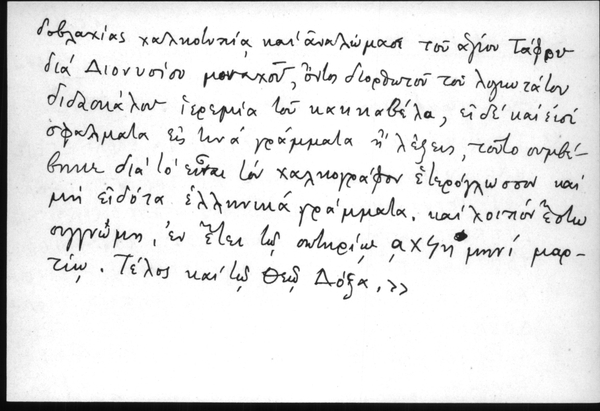 δοβλαχίας χαλκοτυπία καὶ ἀναλώμασι τοῦ ἁγίου Τάφου
διὰ Διονυσίου μοναχοῦ, ὄντος διορθωτοῦ τοῦ λογιωτάτου
διδασκάλου Ἱερεμία τοῦ κακκαβέλα, εἰ δὲ καὶ εἰσί
σφάλματα εἰς τινά γράμματα ἢ λέξεις, τοῦτο συμβέ-
βηκε διὰ τὸ εἶναι τὸν χαλκογράφον ἑτερόγλωσσον καὶ
μὴ εἰδότα ἑλληνικὰ γράμματα. καὶ λοιπὸν ἔστω
συγγνώμη, ἐν ἔτει τῷ σωτηρίῳ αχϟη μηνὶ μαρ-
τίῳ. Τέλος καὶ τῷ Θεῷ Δόξα, >>